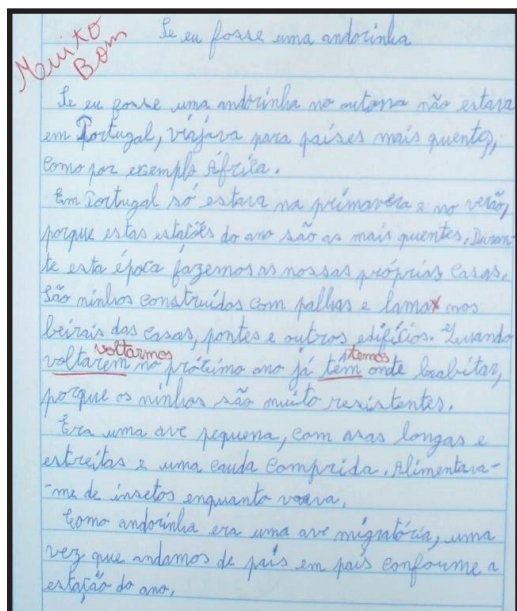 Muito
Bom
Se eu fosse uma andorinha
Se eu fosse uma andorinha no outono não estava
em Portugal, viajava para países mais quentes,
como por exemplo África.
Em Portugal só estava na primavera e no verão,
porque estas estações do ano são as mais quentes. Duran-
te esta época fazemos as nossas próprias casas.
São ninhos construídos com palhas e lama nos
beirais das casas, pontes e outros edifícios. Quando
voltarmos temos
voltarem no próximo ano já tem onde habitar,
porque os ninhos são muito resistentes.
Era uma ave pequena, com asas longas e
estreitas e uma cauda comprida. Alimentava-
-me de insetos enquanto voava.
Como andorinha era uma ave migratória, uma
vez que andamos de país em país conforme a
estação do ano.